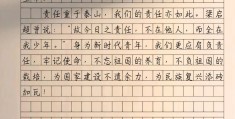 责任重于泰山，我们的责任亦如此。梁启
超曾说：“故今日之责任，不在他人，而全在
我少年。”身为新时代青年，我们更应有负责
任，牢记使命，不忘祖国的养育，不负祖国的
栽培，为国家建设不遗余力，为民族复兴添砖
加瓦！